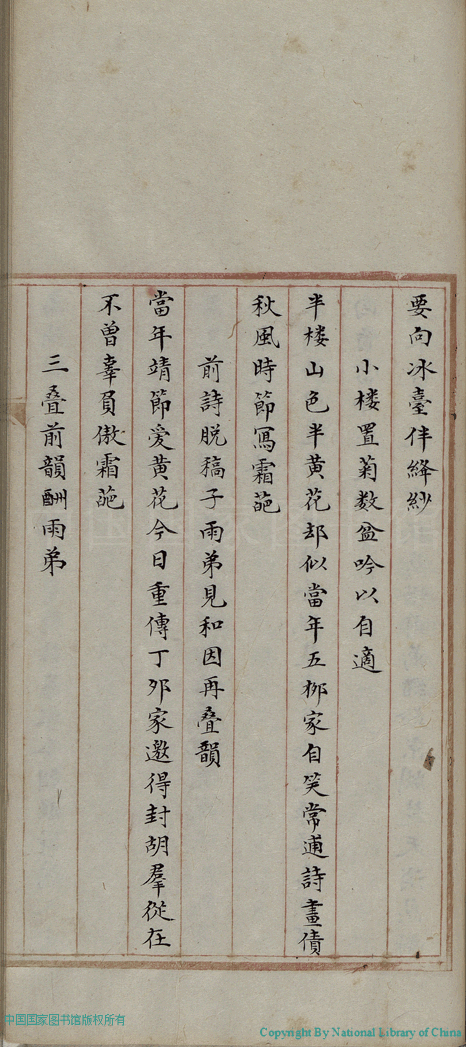 要向冰臺伴絳紗
小楼置菊数盆吟以自適
半楼山色半黄花却似當年五柳家自笑常逋詩畫債
秋風時節寫霜葩
前詩脱稿子雨弟見和因再叠韻
當年靖節爱黄花今日重傳丁卯家邀得封胡羣從在
不曾辜負傲霜葩
三叠前韻酬雨弟
中国国家图书馆版权所有
Copyright By National Library of China